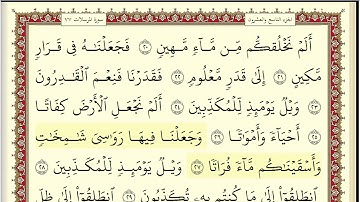 الجزء التاسع والعشرون سورة المرسلات ٧٧
أَلَمْ نَخْلُقكُّم مِّن مَّآءٍ مَّهِينٍ ٢٠ فَجَعَلْنَـٰهُ فِى قَرَارٍ
مَّكِينٍ ٢١ إِلَىٰ قَدَرٍ مَّعْلُومٍ ٢٢ فَقَدَرْنَا فَنِعْمَ ٱلْقَـٰدِرُونَ
٢٣ وَيْلٌ يَوْمَئِذٍ لِّلْمُكَذِّبِينَ ٢٤ أَلَمْ نَجْعَلِ ٱلْأَرْضَ كِفَاتًا
٢٥ أَحْيَآءً وَأَمْوَٰتًا ٢٦ وَجَعَلْنَا فِيهَا رَوَٰسِىَ شَـٰمِخَـٰتٍ
وَأَسْقَيْنَـٰكُم مَّآءً فُرَاتًا ٢٧ وَيْلٌ يَوْمَئِذٍ لِّلْمُكَذِّبِينَ ٢٨
ٱنطَلِقُوٓا۟ إِلَىٰ مَا كُنتُم بِهِۦ تُكَذِّبُونَ ٢٩ ٱنطَلِقُوٓا۟ إِلَىٰ ظِلٍّ